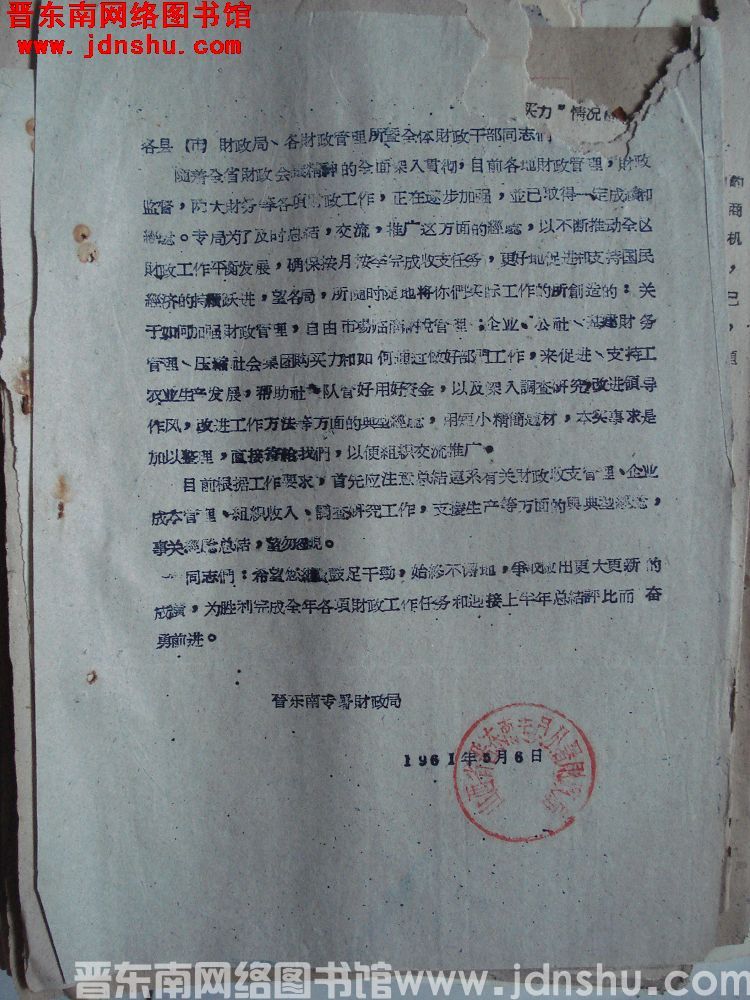 晋东南网络图书馆
www.jdnshu.com
买力"情况
各县（市）財政局、各財政管理所暨全体財政干部同志們
随着全省財政会議精神的全面深入貫彻，目前各地財政管理，財政
监督，防大財务等各項財政工作，正在逐步加强，並已取得一定成績和
經驗。专局为了及时总結，交流，推广这方面的經驗，以不断推动全区
財政工作平衡发展，确保按月按季完成收支任务，更好地促进和支持国民
經济的持續跃进，望各局，所随时随地将你們实际工作的所創造的：关
于如何加强財政管理，自由市場临商稅管理、企业、公社、基建財务
管理、压縮社会集团购买力和如何通过做好部門工作，来促进、支持工
农业生产发展，帮助社、队管好用好資金，以及深入調查研究，改进領导
作风，改进工作方法等方面的典型經驗，用短小精簡題材，本实事求是
加以整理，直接寄給我們，以便組织交流推广。
目前根据工作要求，首先应注意总結這系有关財政收支管理、企业
成本管理、組织收入、調查研究工作，支援生产等方面的典型經驗，
事关經驗总結，望勿忽视。
同志們：希望您們鼓足干勁，始終不懈地，争取做出更大更新的
成績，为胜利完成全年各項財政工作任务和迎接上半年总結評比而 奋
勇前进。
晋东南专署財政局
1961年5月6日
山西省晋东南专员公署財政局
的
商
机
，
已
，
晋东南网络图书馆www.jdnshu.com